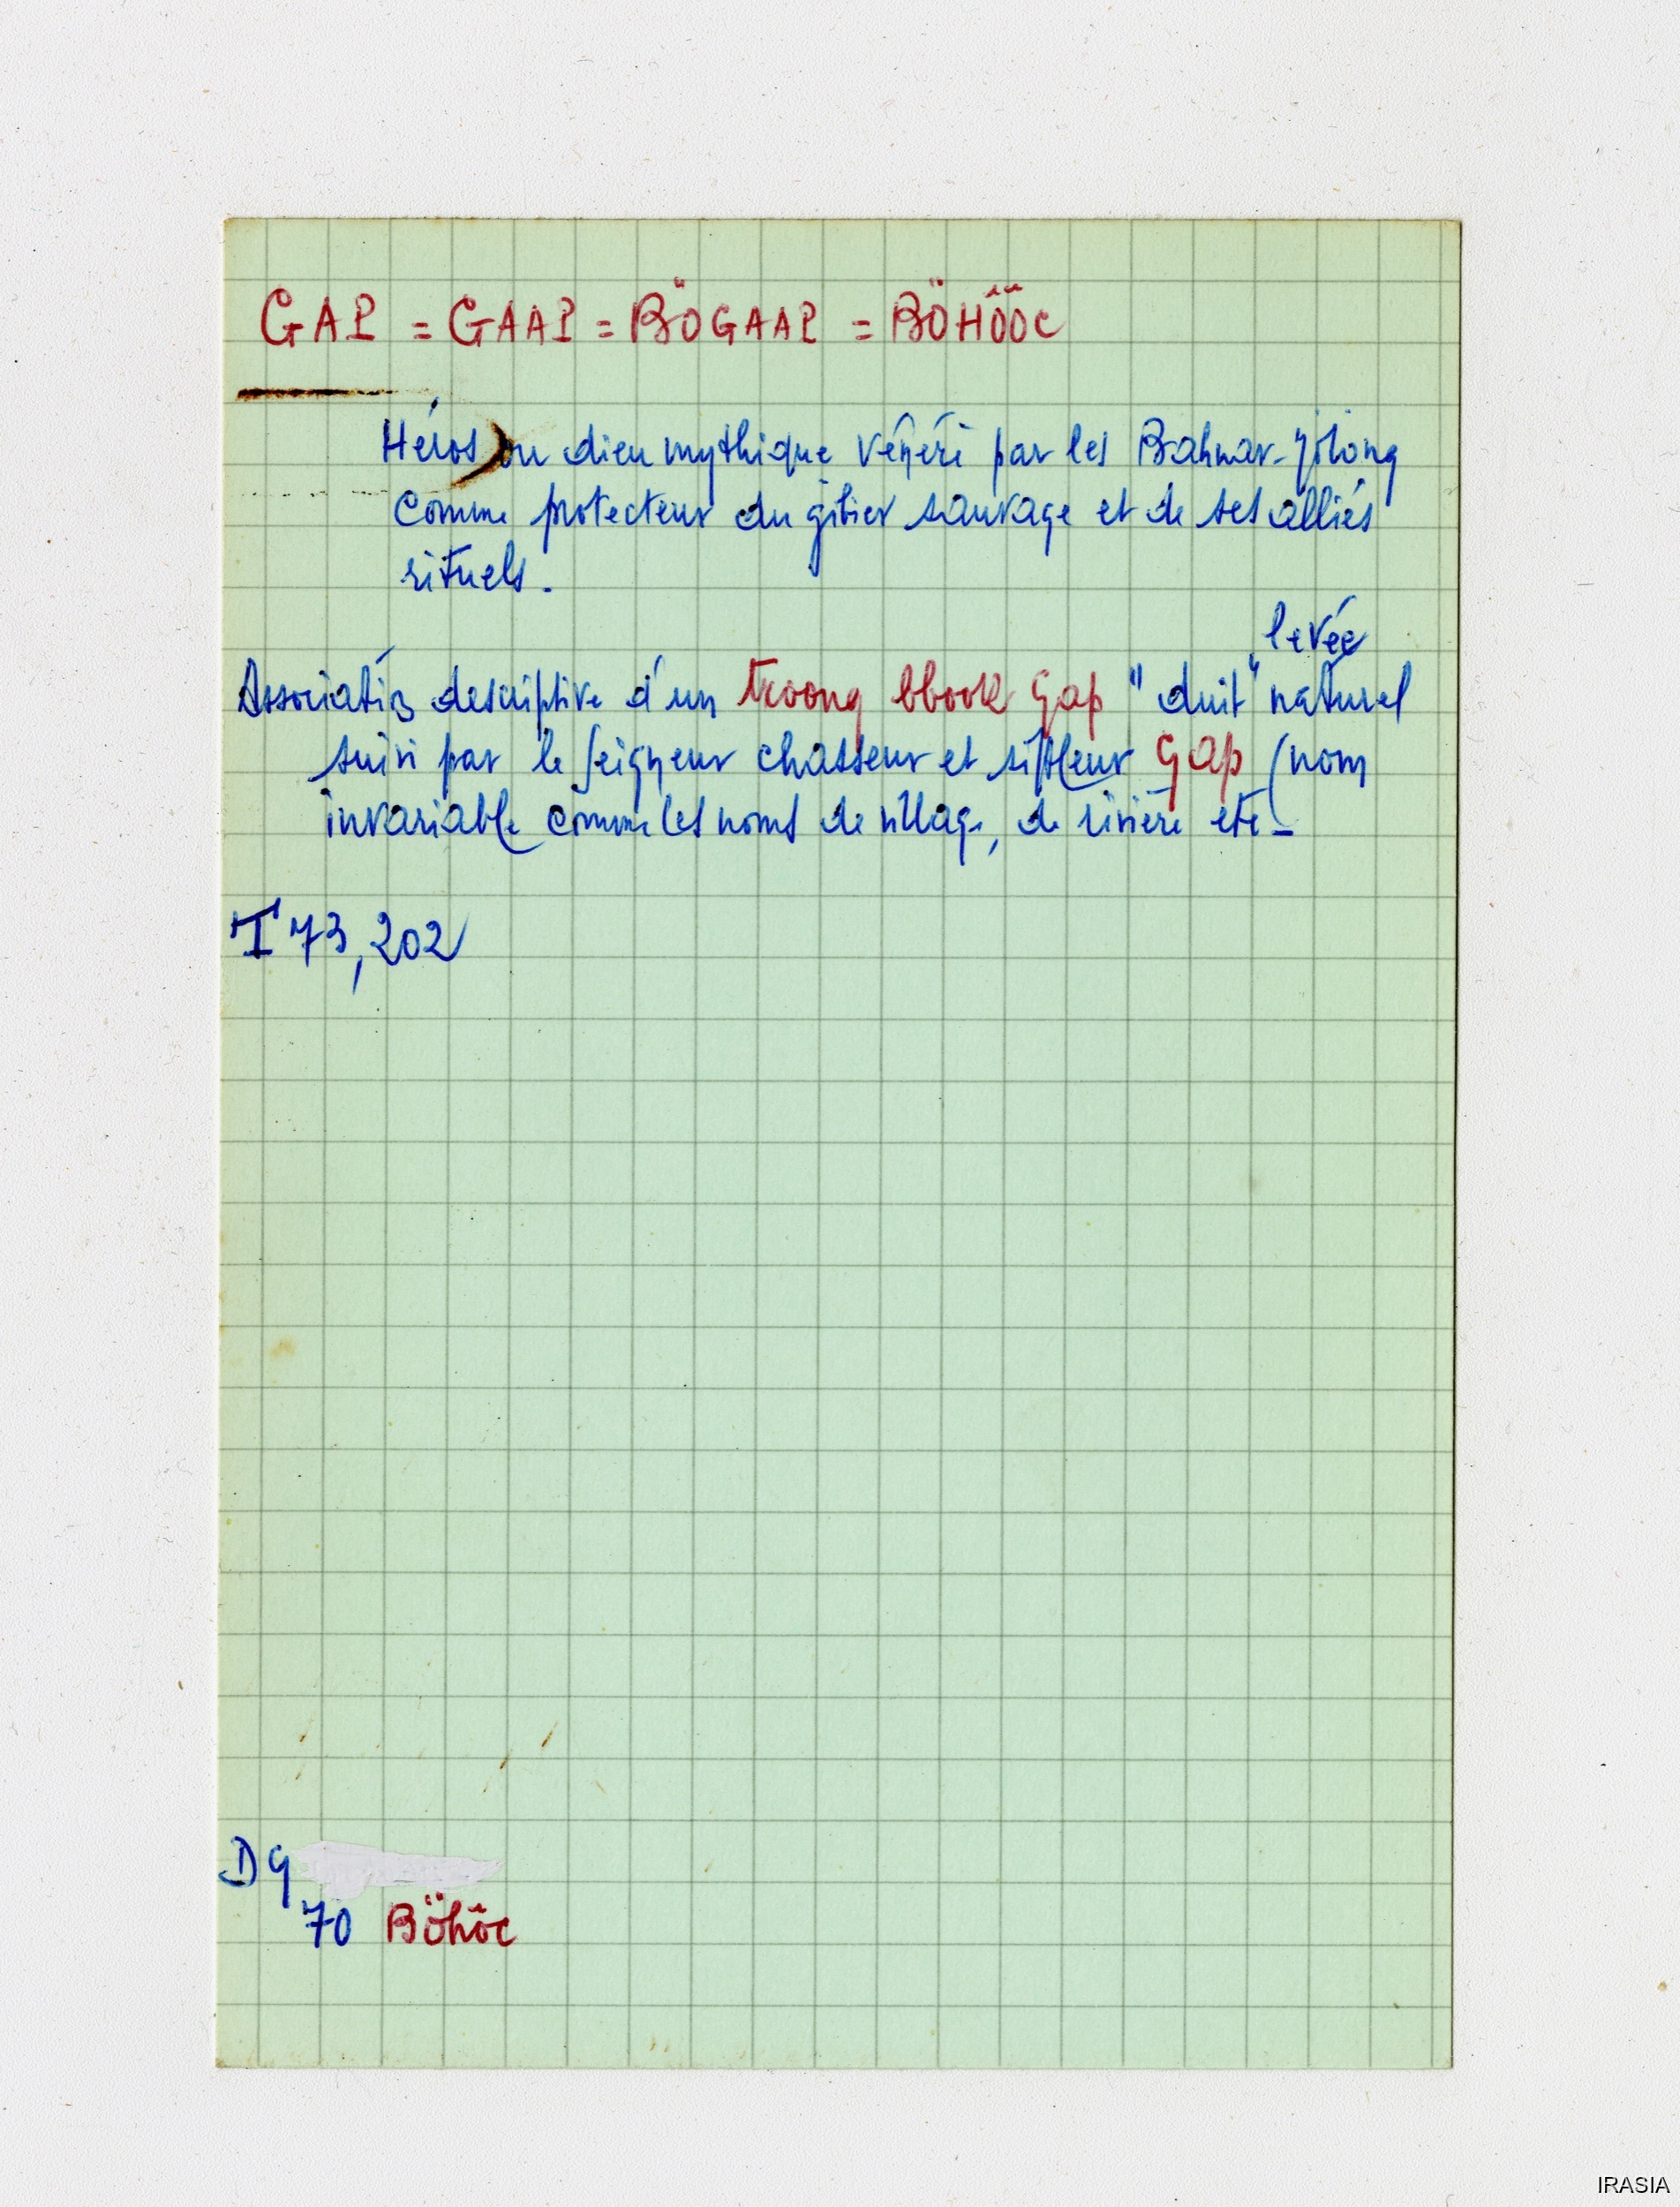 GAP = GAAP = BÖGAAP = BÖHÔÔC
Héros ou dieu mythique vénéré par les Bahnar-Jölong
comme protecteur du gibier sauvage et de ses alliés
rituels.
levée
Association descriptive d'un troong bbook Gap "duit" naturel
suivi par le Seigneur chasseur et siffleur Gap (nom
invariable comme les noms de village, de rivière etc-
T 73, 202
D9
70 Böhôc
IRASIA